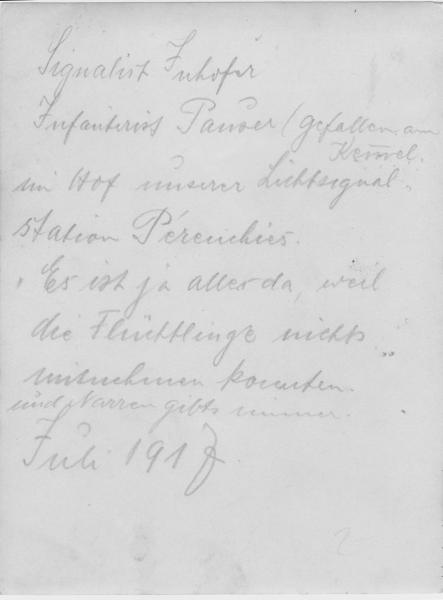 Signalist Inhofer
Infanterist Pauser (gefallen am
Kemmel.
im Hof unserer Lichtsignal-
station Pérenchies.
"Es ist ja alles da, weil
die Flüchtlinge nichts
mitnehmen konnten."
und Narren gibts immer.
Juli 1917